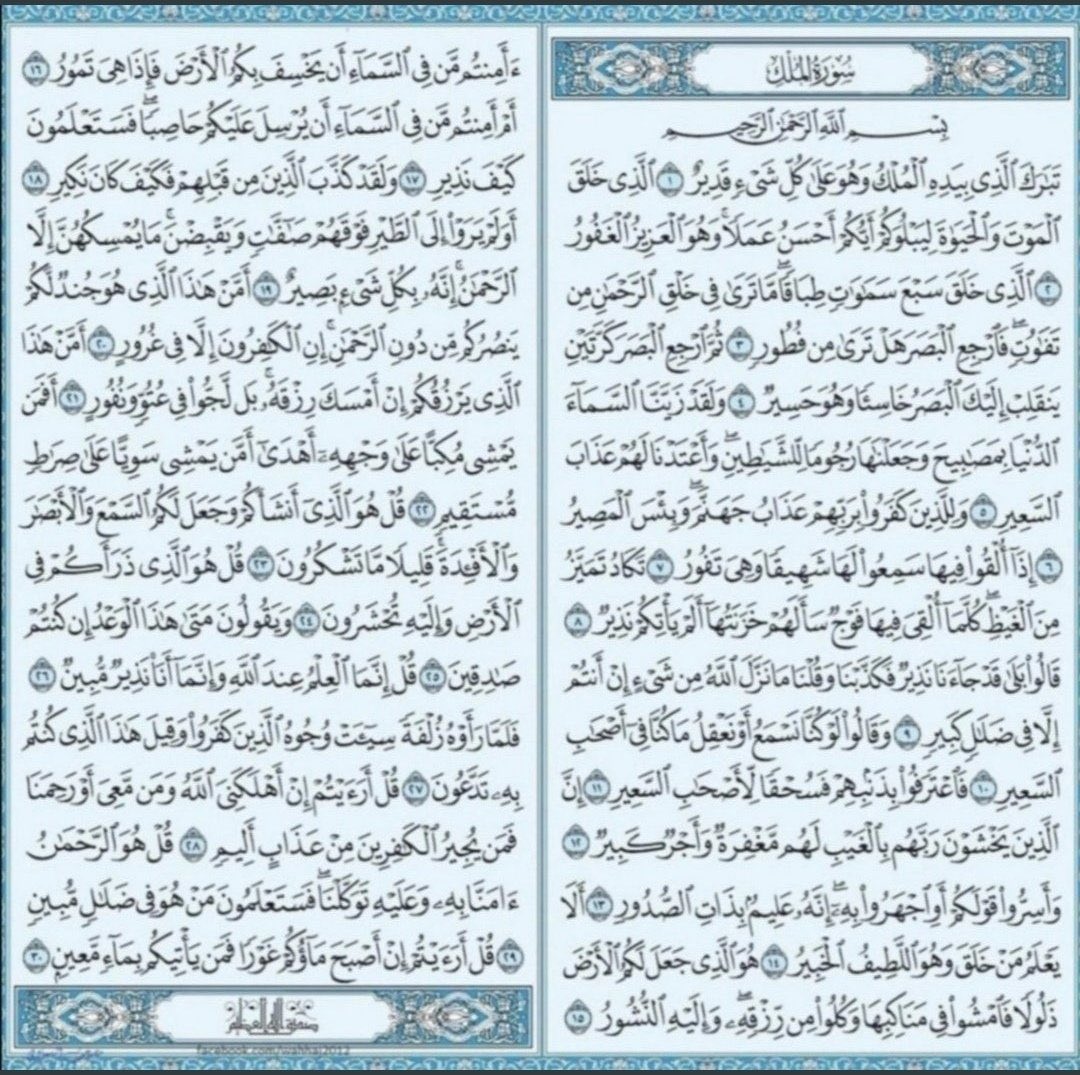 سُورَةُ الْمُلْكِ
بِسْمِ ٱللَّهِ ٱلرَّحْمَٰنِ ٱلرَّحِيمِ
تَبَٰرَكَ ٱلَّذِى بِيَدِهِ ٱلْمُلْكُ وَهُوَ عَلَىٰ كُلِّ شَىْءٍ قَدِيرٌ ١ ٱلَّذِى خَلَقَ
ٱلْمَوْتَ وَٱلْحَيَوٰةَ لِيَبْلُوَكُمْ أَيُّكُمْ أَحْسَنُ عَمَلًا ۚ وَهُوَ ٱلْعَزِيزُ ٱلْغَفُورُ
٢ ٱلَّذِى خَلَقَ سَبْعَ سَمَٰوَٰتٍ طِبَاقًا ۖ مَّا تَرَىٰ فِى خَلْقِ ٱلرَّحْمَٰنِ مِن
تَفَٰوُتٍ ۖ فَٱرْجِعِ ٱلْبَصَرَ هَلْ تَرَىٰ مِن فُطُورٍ ٣ ثُمَّ ٱرْجِعِ ٱلْبَصَرَ كَرَّتَيْنِ
يَنقَلِبْ إِلَيْكَ ٱلْبَصَرُ خَاسِئًا وَهُوَ حَسِيرٌ ٤ وَلَقَدْ زَيَّنَّا ٱلسَّمَآءَ
ٱلدُّنْيَا بِمَصَٰبِيحَ وَجَعَلْنَٰهَا رُجُومًا لِّلشَّيَٰطِينِ ۖ وَأَعْتَدْنَا لَهُمْ عَذَابَ
ٱلسَّعِيرِ ٥ وَلِلَّذِينَ كَفَرُوا۟ بِرَبِّهِمْ عَذَابُ جَهَنَّمَ ۖ وَبِئْسَ ٱلْمَصِيرُ
٦ إِذَآ أُلْقُوا۟ فِيهَا سَمِعُوا۟ لَهَا شَهِيقًا وَهِىَ تَفُورُ ٧ تَكَادُ تَمَيَّزُ
مِنَ ٱلْغَيْظِ ۖ كُلَّمَآ أُلْقِىَ فِيهَا فَوْجٌ سَأَلَهُمْ خَزَنَتُهَآ أَلَمْ يَأْتِكُمْ نَذِيرٌ ٨
قَالُوا۟ بَلَىٰ قَدْ جَآءَنَا نَذِيرٌ فَكَذَّبْنَا وَقُلْنَا مَا نَزَّلَ ٱللَّهُ مِن شَىْءٍ إِنْ أَنتُمْ
إِلَّا فِى ضَلَٰلٍ كَبِيرٍ ٩ وَقَالُوا۟ لَوْ كُنَّا نَسْمَعُ أَوْ نَعْقِلُ مَا كُنَّا فِىٓ أَصْحَٰبِ
ٱلسَّعِيرِ ١٠ فَٱعْتَرَفُوا۟ بِذَنۢبِهِمْ فَسُحْقًا لِّأَصْحَٰبِ ٱلسَّعِيرِ ١١ إِنَّ
ٱلَّذِينَ يَخْشَوْنَ رَبَّهُم بِٱلْغَيْبِ لَهُم مَّغْفِرَةٌ وَأَجْرٌ كَبِيرٌ ١٢
وَأَسِرُّوا۟ قَوْلَكُمْ أَوِ ٱجْهَرُوا۟ بِهِۦٓ ۖ إِنَّهُۥ عَلِيمٌۢ بِذَاتِ ٱلصُّدُورِ ١٣ أَلَا
يَعْلَمُ مَنْ خَلَقَ وَهُوَ ٱللَّطِيفُ ٱلْخَبِيرُ ١٤ هُوَ ٱلَّذِى جَعَلَ لَكُمُ ٱلْأَرْضَ
ذَلُولًا فَٱمْشُوا۟ فِى مَنَاكِبِهَا وَكُلُوا۟ مِن رِّزْقِهِۦ ۖ وَإِلَيْهِ ٱلنُّشُورُ ١٥
ءَأَمِنتُم مَّن فِى ٱلسَّمَآءِ أَن يَخْسِفَ بِكُمُ ٱلْأَرْضَ فَإِذَا هِىَ تَمُورُ ١٦
أَمْ أَمِنتُم مَّن فِى ٱلسَّمَآءِ أَن يُرْسِلَ عَلَيْكُمْ حَاصِبًا ۖ فَسَتَعْلَمُونَ
كَيْفَ نَذِيرِ ١٧ وَلَقَدْ كَذَّبَ ٱلَّذِينَ مِن قَبْلِهِمْ فَكَيْفَ كَانَ نَكِيرِ ١٨
أَوَلَمْ يَرَوْا۟ إِلَى ٱلطَّيْرِ فَوْقَهُمْ صَٰٓفَّٰتٍ وَيَقْبِضْنَ ۚ مَا يُمْسِكُهُنَّ إِلَّا
ٱلرَّحْمَٰنُ ۚ إِنَّهُۥ بِكُلِّ شَىْءٍۭ بَصِيرٌ ١٩ أَمَّنْ هَٰذَا ٱلَّذِى هُوَ جُندٌ لَّكُمْ
يَنصُرُكُم مِّن دُونِ ٱلرَّحْمَٰنِ ۚ إِنِ ٱلْكَٰفِرُونَ إِلَّا فِى غُرُورٍ ٢٠ أَمَّنْ هَٰذَا
ٱلَّذِى يَرْزُقُكُمْ إِنْ أَمْسَكَ رِزْقَهُۥ ۚ بَل لَّجُّوا۟ فِى عُتُوٍّ وَنُفُورٍ ٢١ أَفَمَن
يَمْشِى مُكِبًّا عَلَىٰ وَجْهِهِۦٓ أَهْدَىٰٓ أَمَّن يَمْشِى سَوِيًّا عَلَىٰ صِرَٰطٍ
مُّسْتَقِيمٍ ٢٢ قُلْ هُوَ ٱلَّذِىٓ أَنشَأَكُمْ وَجَعَلَ لَكُمُ ٱلسَّمْعَ وَٱلْأَبْصَٰرَ
وَٱلْأَفْـِٔدَةَ ۖ قَلِيلًا مَّا تَشْكُرُونَ ٢٣ قُلْ هُوَ ٱلَّذِى ذَرَأَكُمْ فِى
ٱلْأَرْضِ وَإِلَيْهِ تُحْشَرُونَ ٢٤ وَيَقُولُونَ مَتَىٰ هَٰذَا ٱلْوَعْدُ إِن كُنتُمْ
صَٰدِقِينَ ٢٥ قُلْ إِنَّمَا ٱلْعِلْمُ عِندَ ٱللَّهِ وَإِنَّمَآ أَنَا۠ نَذِيرٌ مُّبِينٌ ٢٦
فَلَمَّا رَأَوْهُ زُلْفَةً سِيٓـَٔتْ وُجُوهُ ٱلَّذِينَ كَفَرُوا۟ وَقِيلَ هَٰذَا ٱلَّذِى كُنتُم
بِهِۦ تَدَّعُونَ ٢٧ قُلْ أَرَءَيْتُمْ إِنْ أَهْلَكَنِىَ ٱللَّهُ وَمَن مَّعِىَ أَوْ رَحِمَنَا
فَمَن يُجِيرُ ٱلْكَٰفِرِينَ مِنْ عَذَابٍ أَلِيمٍ ٢٨ قُلْ هُوَ ٱلرَّحْمَٰنُ
ءَامَنَّا بِهِۦ وَعَلَيْهِ تَوَكَّلْنَا ۖ فَسَتَعْلَمُونَ مَنْ هُوَ فِى ضَلَٰلٍ مُّبِينٍ
٢٩ قُلْ أَرَءَيْتُمْ إِنْ أَصْبَحَ مَآؤُكُمْ غَوْرًا فَمَن يَأْتِيكُم بِمَآءٍ مَّعِينٍۭ ٣٠
صدق الله العظيم
facebook.com/wahhaj2012